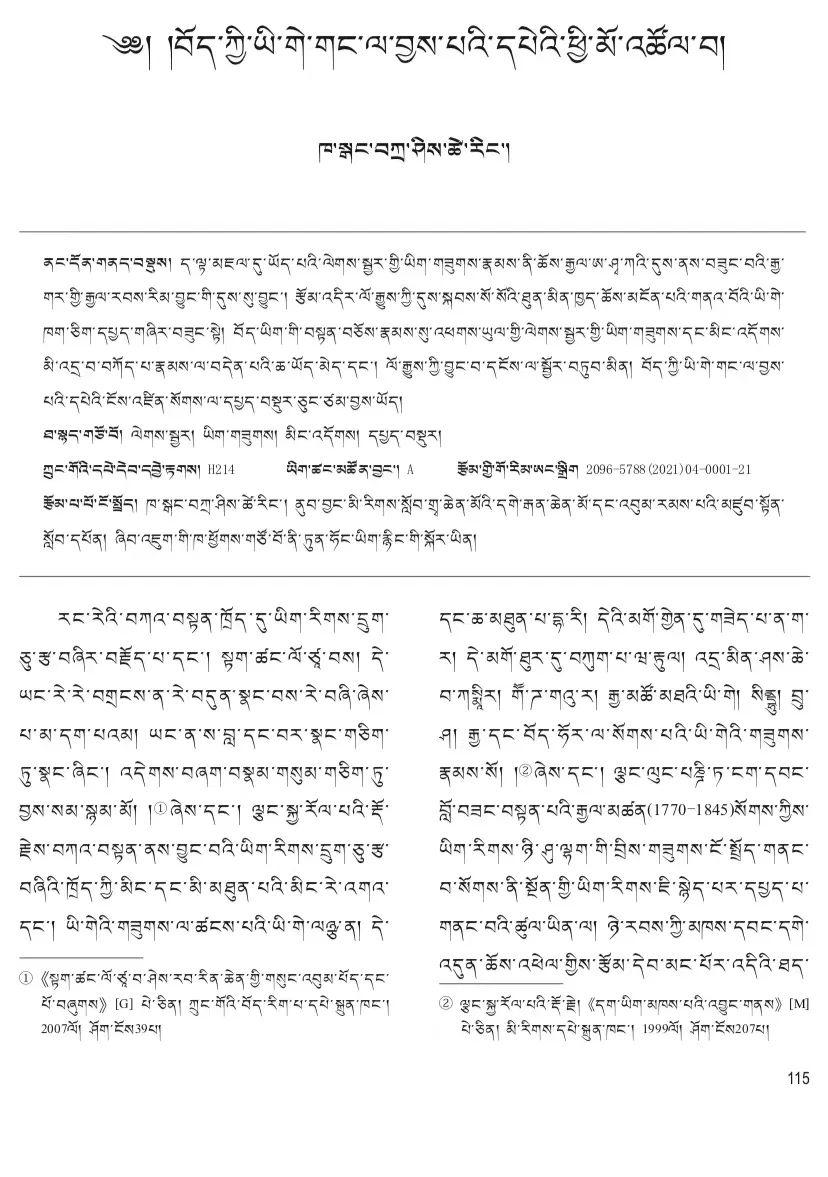 ༄༅། །བོད་ཀྱི་ཡི་གེ་གང་ལ་བྱས་པའི་དཔེའི་ཕྱི་མོ་འཚོལ་བ།
ཁ་སྒང་བཀྲ་ཤིས་ཚེ་རིང་།
ནང་དོན་གནད་བསྡུས། ད་ལྟ་མཇལ་དུ་ཡོད་པའི་ལེགས་སྦྱར་གྱི་ཡིག་གཟུགས་རྣམས་ནི་ཆོས་རྒྱལ་ཨ་ཤྭ་ཀའི་དུས་ནས་བཟུང་བའི་རྒྱ་
གར་གྱི་རྒྱལ་རབས་རིམ་བྱུང་གི་དུས་སུ་བྱུང་། རྩོམ་འདིར་ལོ་རྒྱུས་ཀྱི་དུས་སྐབས་སོ་སོའི་ཐུན་མིན་ཁྱད་ཆོས་མངོན་པའི་གནའ་བོའི་ཡི་གེ་
ཁག་ཅིག་དཔྱད་གཞིར་བཟུང་སྟེ། བོད་ཡིག་གི་བསྟན་བཅོས་རྣམས་སུ་འཕགས་ཡུལ་གྱི་ལེགས་སྦྱར་གྱི་ཡིག་གཟུགས་དང་མིང་འདོགས་
མི་འདྲ་བ་བཀོད་པ་རྣམས་ལ་བདེན་པའི་ཆ་ཡོད་མེད་དང་། ལོ་རྒྱུས་ཀྱི་བྱུང་བ་དངོས་ལ་སྦྱོར་བཏུབ་མིན། བོད་ཀྱི་ཡི་གེ་གང་ལ་བྱས་
པའི་དཔེའི་ངོས་འཛིན་སོགས་ལ་དཔྱད་བསྡུར་ཅུང་ཙམ་བྱས་ཡོད།
ཐ་སྙད་གཙོ་བོ། ལེགས་སྦྱར། ཡིག་གཟུགས། མིང་འདོགས། དཔྱད་བསྡུར།
ཀྲུང་གོའི་དཔེ་དེབ་དབྱེ་རྟགས། H214 ཡིག་ཚང་མཚོན་བྱང་། A རྩོམ་གྱི་གོ་རིམ་ཨང་སྒྲིག 2096-5788(2021)04-0001-21
རྩོམ་པ་པོ་ངོ་སྤྲོད། ཁ་སྒང་བཀྲ་ཤིས་ཚེ་རིང་། ནུབ་བྱང་མི་རིགས་སློབ་གྲྭ་ཆེན་མོའི་དགེ་རྒན་ཆེན་མོ་དང་འབུམ་རམས་པའི་མཛུབ་སྟོན་
སློབ་དཔོན། ཞིབ་འཇུག་གི་ཁ་ཕྱོགས་གཙོ་བོ་ནི་ཏུན་ཧོང་ཡིག་རྙིང་གི་སྐོར་ཡིན།
རང་རེའི་བཀའ་བསྟན་ཁྲོད་དུ་ཡིག་རིགས་དྲུག་
ཅུ་རྩ་བཞིར་བརྗོད་པ་དང་། སྟག་ཚང་ལོ་ཙཱ་བས། དེ་
ཡང་རེ་རེ་བགྲངས་ན་རེ་བདུན་སྣང་བས་རེ་བཞི་ཞེས་
པ་མ་དག་པའམ། ཡང་ན་ས་བླ་དང་བར་སྣང་གཅིག་
ཏུ་སྣང་ཞིང་། འདེགས་བཞག་བསྣམ་གསུམ་གཅིག་ཏུ་
བྱས་སམ་སྙམ་མོ། །①ཞེས་དང་། ལྕང་སྐྱ་རོལ་པའི་རྡོ་
རྗེས་བཀའ་བསྟན་ནས་བྱུང་བའི་ཡིག་རིགས་དྲུག་ཅུ་རྩ་
བཞིའི་ཁྲོད་ཀྱི་མིང་དང་མི་མཐུན་པའི་མིང་རེ་འགའ་
དང་། ཡི་གེའི་གཟུགས་ལ་ཚངས་པའི་ཡི་གེ་ལཉྫ་ན། དེ་
① 《སྟག་ཚང་ལོ་ཙཱ་བ་ཤེས་རབ་རིན་ཆེན་གྱི་གསུང་འབུམ་པོད་དང་
པོ་བཞུགས》 [G] པེ་ཅིན། ཀྲུང་གོའི་བོད་རིག་པ་དཔེ་སྐྲུན་ཁང་།
2007ལོ། ཤོག་ངོས39པ།
དང་ཆ་མཐུན་པ་ཌྷ་རི། དེའི་མགོ་གྱེན་དུ་གཟེད་པ་ན་ག་
ར། དེ་མགོ་ཐུར་དུ་བཀུག་པ་ཝ་རྟུལ། འདྲ་མིན་ཤས་ཆེ་
བ་ཀསྨཱིར། གཽ་ཌ་གའུ་ར། རྒྱ་མཚོ་མཐའི་ཡི་གེ། སིནྡྷུ། བྲུ་
ཤ། རྒྱ་དང་བོད་ཧོར་ལ་སོགས་པའི་ཡི་གེའི་གཟུགས་
རྣམས་སོ། །②ཞེས་དང་། ལྕང་ལུང་པཎྜི་ཏ་ངག་དབང་
བློ་བཟང་བསྟན་པའི་རྒྱལ་མཚན(1770-1845)སོགས་ཀྱིས་
ཡིག་རིགས་ཉི་ཤུ་ལྷག་གི་བྲིས་གཟུགས་ངོ་སྤྲོད་གནང་
བ་སོགས་ནི་སྔོན་གྱི་ཡིག་རིགས་ཇི་སྙེད་པར་དཔྱད་པ་
གནང་བའི་ཚུལ་ཡིན་ལ། ཉེ་རབས་ཀྱི་མཁས་དབང་དགེ་
འདུན་ཆོས་འཕེལ་གྱིས་རྩོམ་དེབ་མང་པོར་འདིའི་ཐད་
② ལྕང་སྐྱ་རོལ་པའི་རྡོ་རྗེ། 《དག་ཡིག་མཁས་པའི་འབྱུང་གནས》 [M]
པེ་ཅིན། མི་རིགས་དཔེ་སྐྲུན་ཁང་། 1999ལོ། ཤོག་ངོས207པ།
115